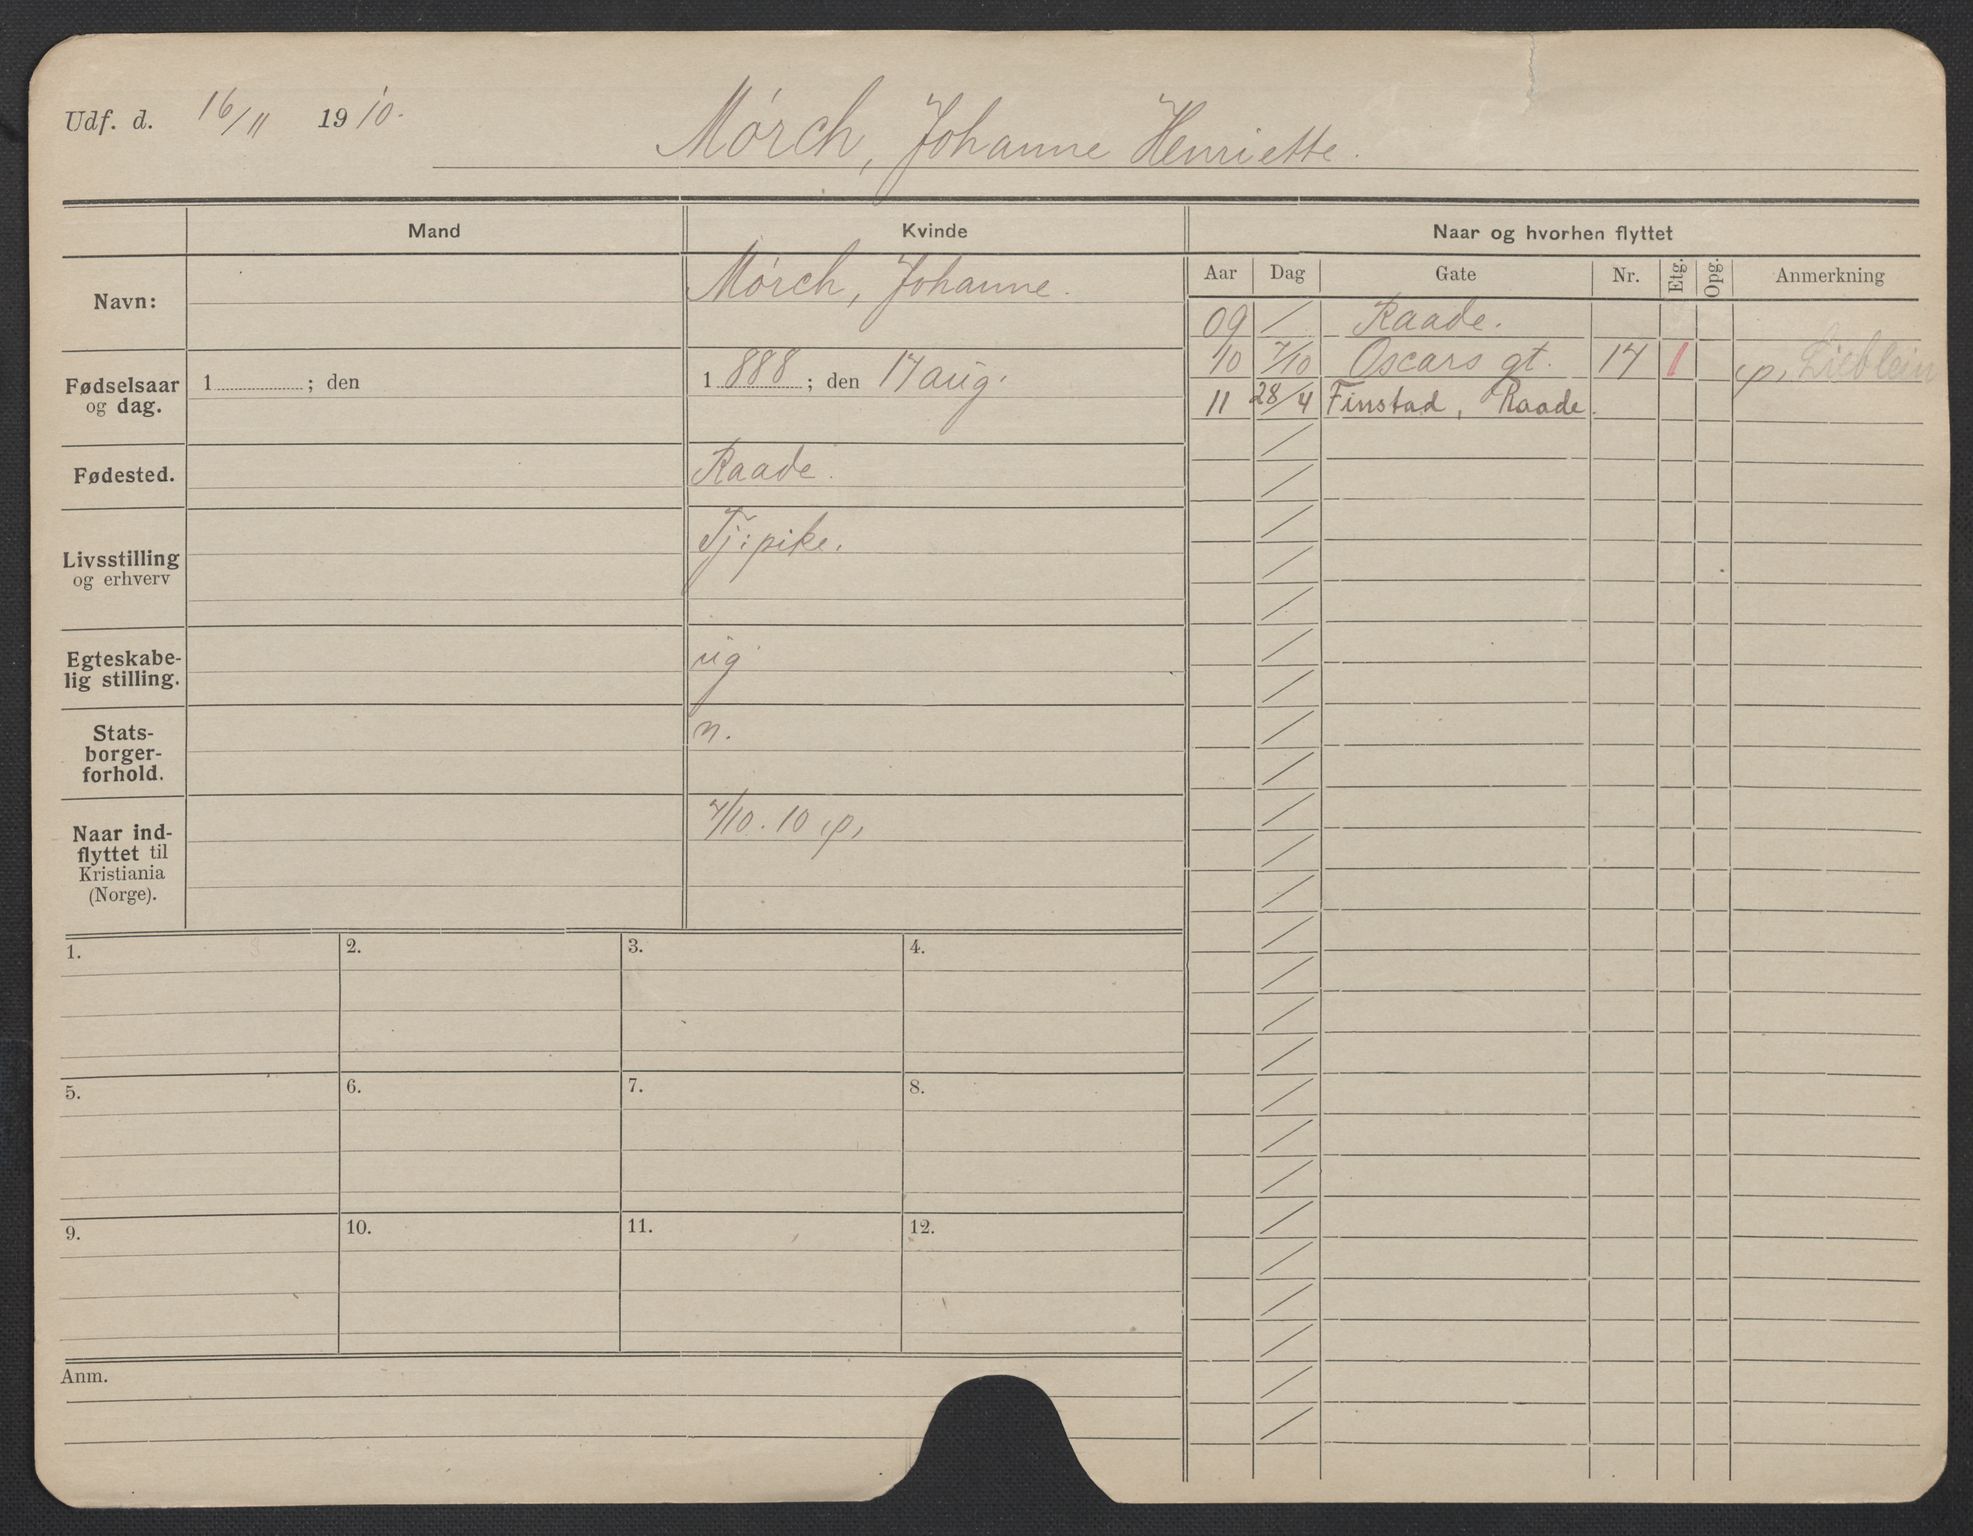 Udf. d. 16/11 1910.
Mórch, Johanne Henriette.
Mand
Kvinde
Naar og hvorhen flyttet
Aar Dag Gate Nr. Etg. Opg. Anmerkning
Navn:
Mórch, Johanne.
09 / Raade.
10 7/10 Oscars gt. 17 1 p. Lieblein
11 28/4 Finstad, Raade.
Fødselsaar
og dag.
1 ; den
1888; den 17 aug.
Fødested.
Raade.
Livsstilling
og erhverv
Tj: pike.
Egteskabe-
lig stilling.
ug
Stats-
borger-
forhold.
n.
Naar ind-
flyttet til
Kristiania
(Norge).
7/10. 10 p,
1. 2. 3. 4.
5. 6. 7. 8.
9. 10. 11. 12.
Anm.